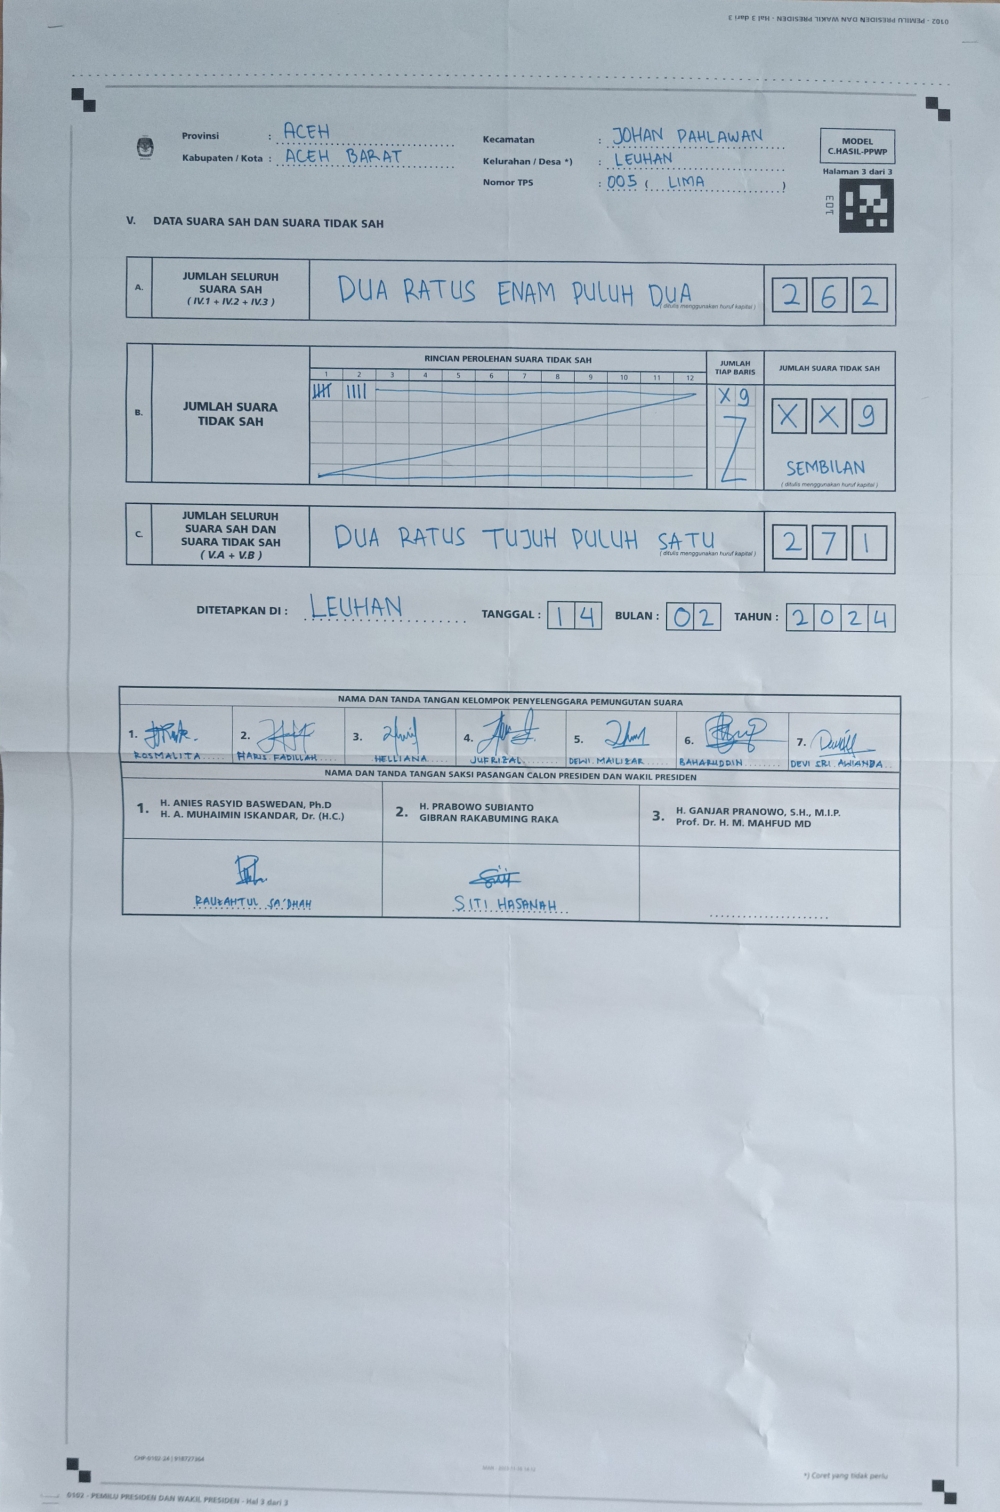 0102 - PEMILU PRESIDEN DAN WAKIL PRESIDEN - Hal 3 dari 3
Provinsi : ACEH
Kabupaten / Kota : ACEH BARAT
Kecamatan : JOHAN PAHLAWAN
Kelurahan / Desa *) : LEUHAN
Nomor TPS : 005 ( LIMA )
MODEL
C.HASIL-PPWP
Halaman 3 dari 3
E01
V. DATA SUARA SAH DAN SUARA TIDAK SAH
A. JUMLAH SELURUH
SUARA SAH
( IV.1 + IV.2 + IV.3 )
DUA RATUS ENAM PULUH DUA
( ditulis menggunakan huruf kapital )
2 6 2
B. JUMLAH SUARA
TIDAK SAH
RINCIAN PEROLEHAN SUARA TIDAK SAH
1 2 3 4 5 6 7 8 9 10 11 12
JUMLAH
TIAP BARIS
X 9
JUMLAH SUARA TIDAK SAH
X X 9
SEMBILAN
( ditulis menggunakan huruf kapital )
C. JUMLAH SELURUH
SUARA SAH DAN
SUARA TIDAK SAH
( V.A + V.B )
DUA RATUS TUJUH PULUH SATU
( ditulis menggunakan huruf kapital )
2 7 1
DITETAPKAN DI : LEUHAN TANGGAL : 14 BULAN : 02 TAHUN : 2024
NAMA DAN TANDA TANGAN KELOMPOK PENYELENGGARA PEMUNGUTAN SUARA
1. 2. 3. 4. 5. 6. 7.
ROSMALITA HARIS FADILLAH HELLIANA JUFRIZAL DEWI MAILIZAR BAHARUDDIN DEVI SRI AWIANDA
NAMA DAN TANDA TANGAN SAKSI PASANGAN CALON PRESIDEN DAN WAKIL PRESIDEN
1. H. ANIES RASYID BASWEDAN, Ph.D
H. A. MUHAIMIN ISKANDAR, Dr. (H.C.)
2. H. PRABOWO SUBIANTO
GIBRAN RAKABUMING RAKA
3. H. GANJAR PRANOWO, S.H., M.I.P.
Prof. Dr. H. M. MAHFUD MD
RAUZAHTUL SA'DHAH
SITI HASANAH
*) Coret yang tidak perlu
0102 - PEMILU PRESIDEN DAN WAKIL PRESIDEN - Hal 3 dari 3